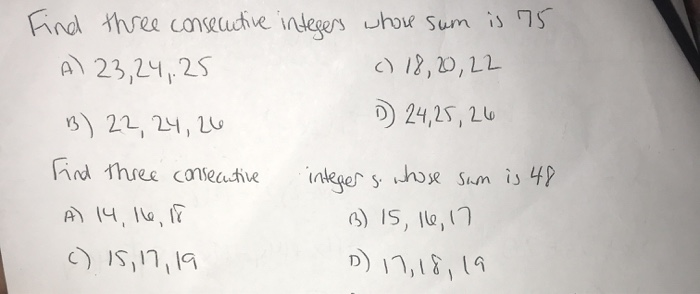 Find three consecutive integers whose sum is 75
A) 23,24,25 C) 18,20,22
B) 22,24,26 D) 24,25,26
Find three consecutive integers. whose sum is 48
A) 14,16,18 B) 15,16,17
C) 15,17,19 D) 17,18,19